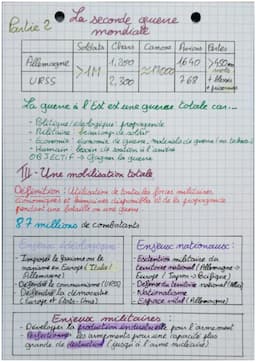 Partie 2
La seconde guerre
mondiale
Soldats Chars Canons Avions Pertes
Allemagne >1M 1640
URSS 2,300 768
La guerre à l'Est est une guerre totale car...
- Politique/idéologique: propagande
- Militaire: beaucoup de
- Economie: économie de guerre,
- Humain: besoin de soutien à l'arrière
OBJECTIF → Gagner la guerre
III - Une mobilisation totale
Définition: Utilisation de toutes les forces militaires,
économiques et humaines disponibles et de la propagande
pendant une bataille ou une guerre
87 millions de combattants
Enjeux idéologiques
- Imposer le fascisme ou le
nazisme en Europe (Italie/
Allemagne)
- Défendre le communisme (URSS)
- Défendre la démocratie
(Europe et États-Unis)
Enjeux nationaux:
- Extension militaire du
territoire national (Allemagne →
Europe / Japon → Pacifique)
- Défense du territoire national
- Nationalisme
- Espace vital (Allemagne)
Enjeux militaires:
- Développer la production industrielle pour l'armement
- Perfectionner les armements pour une capacité plus
grande de destruction (jusqu'à l'arme nucléaire)